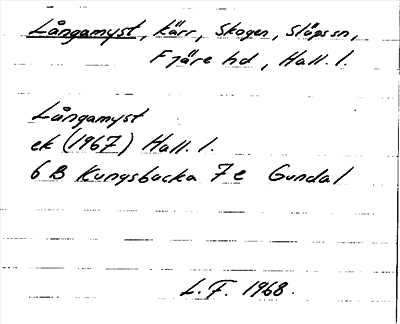 Långamyst, kärr, Skogen, Släps sn,
Fjäre hd, Hall. l.
Långamyst
ek (1967) Hall. l.
6 B Kungsbacka 7 e Gundal
L. F. 1968.